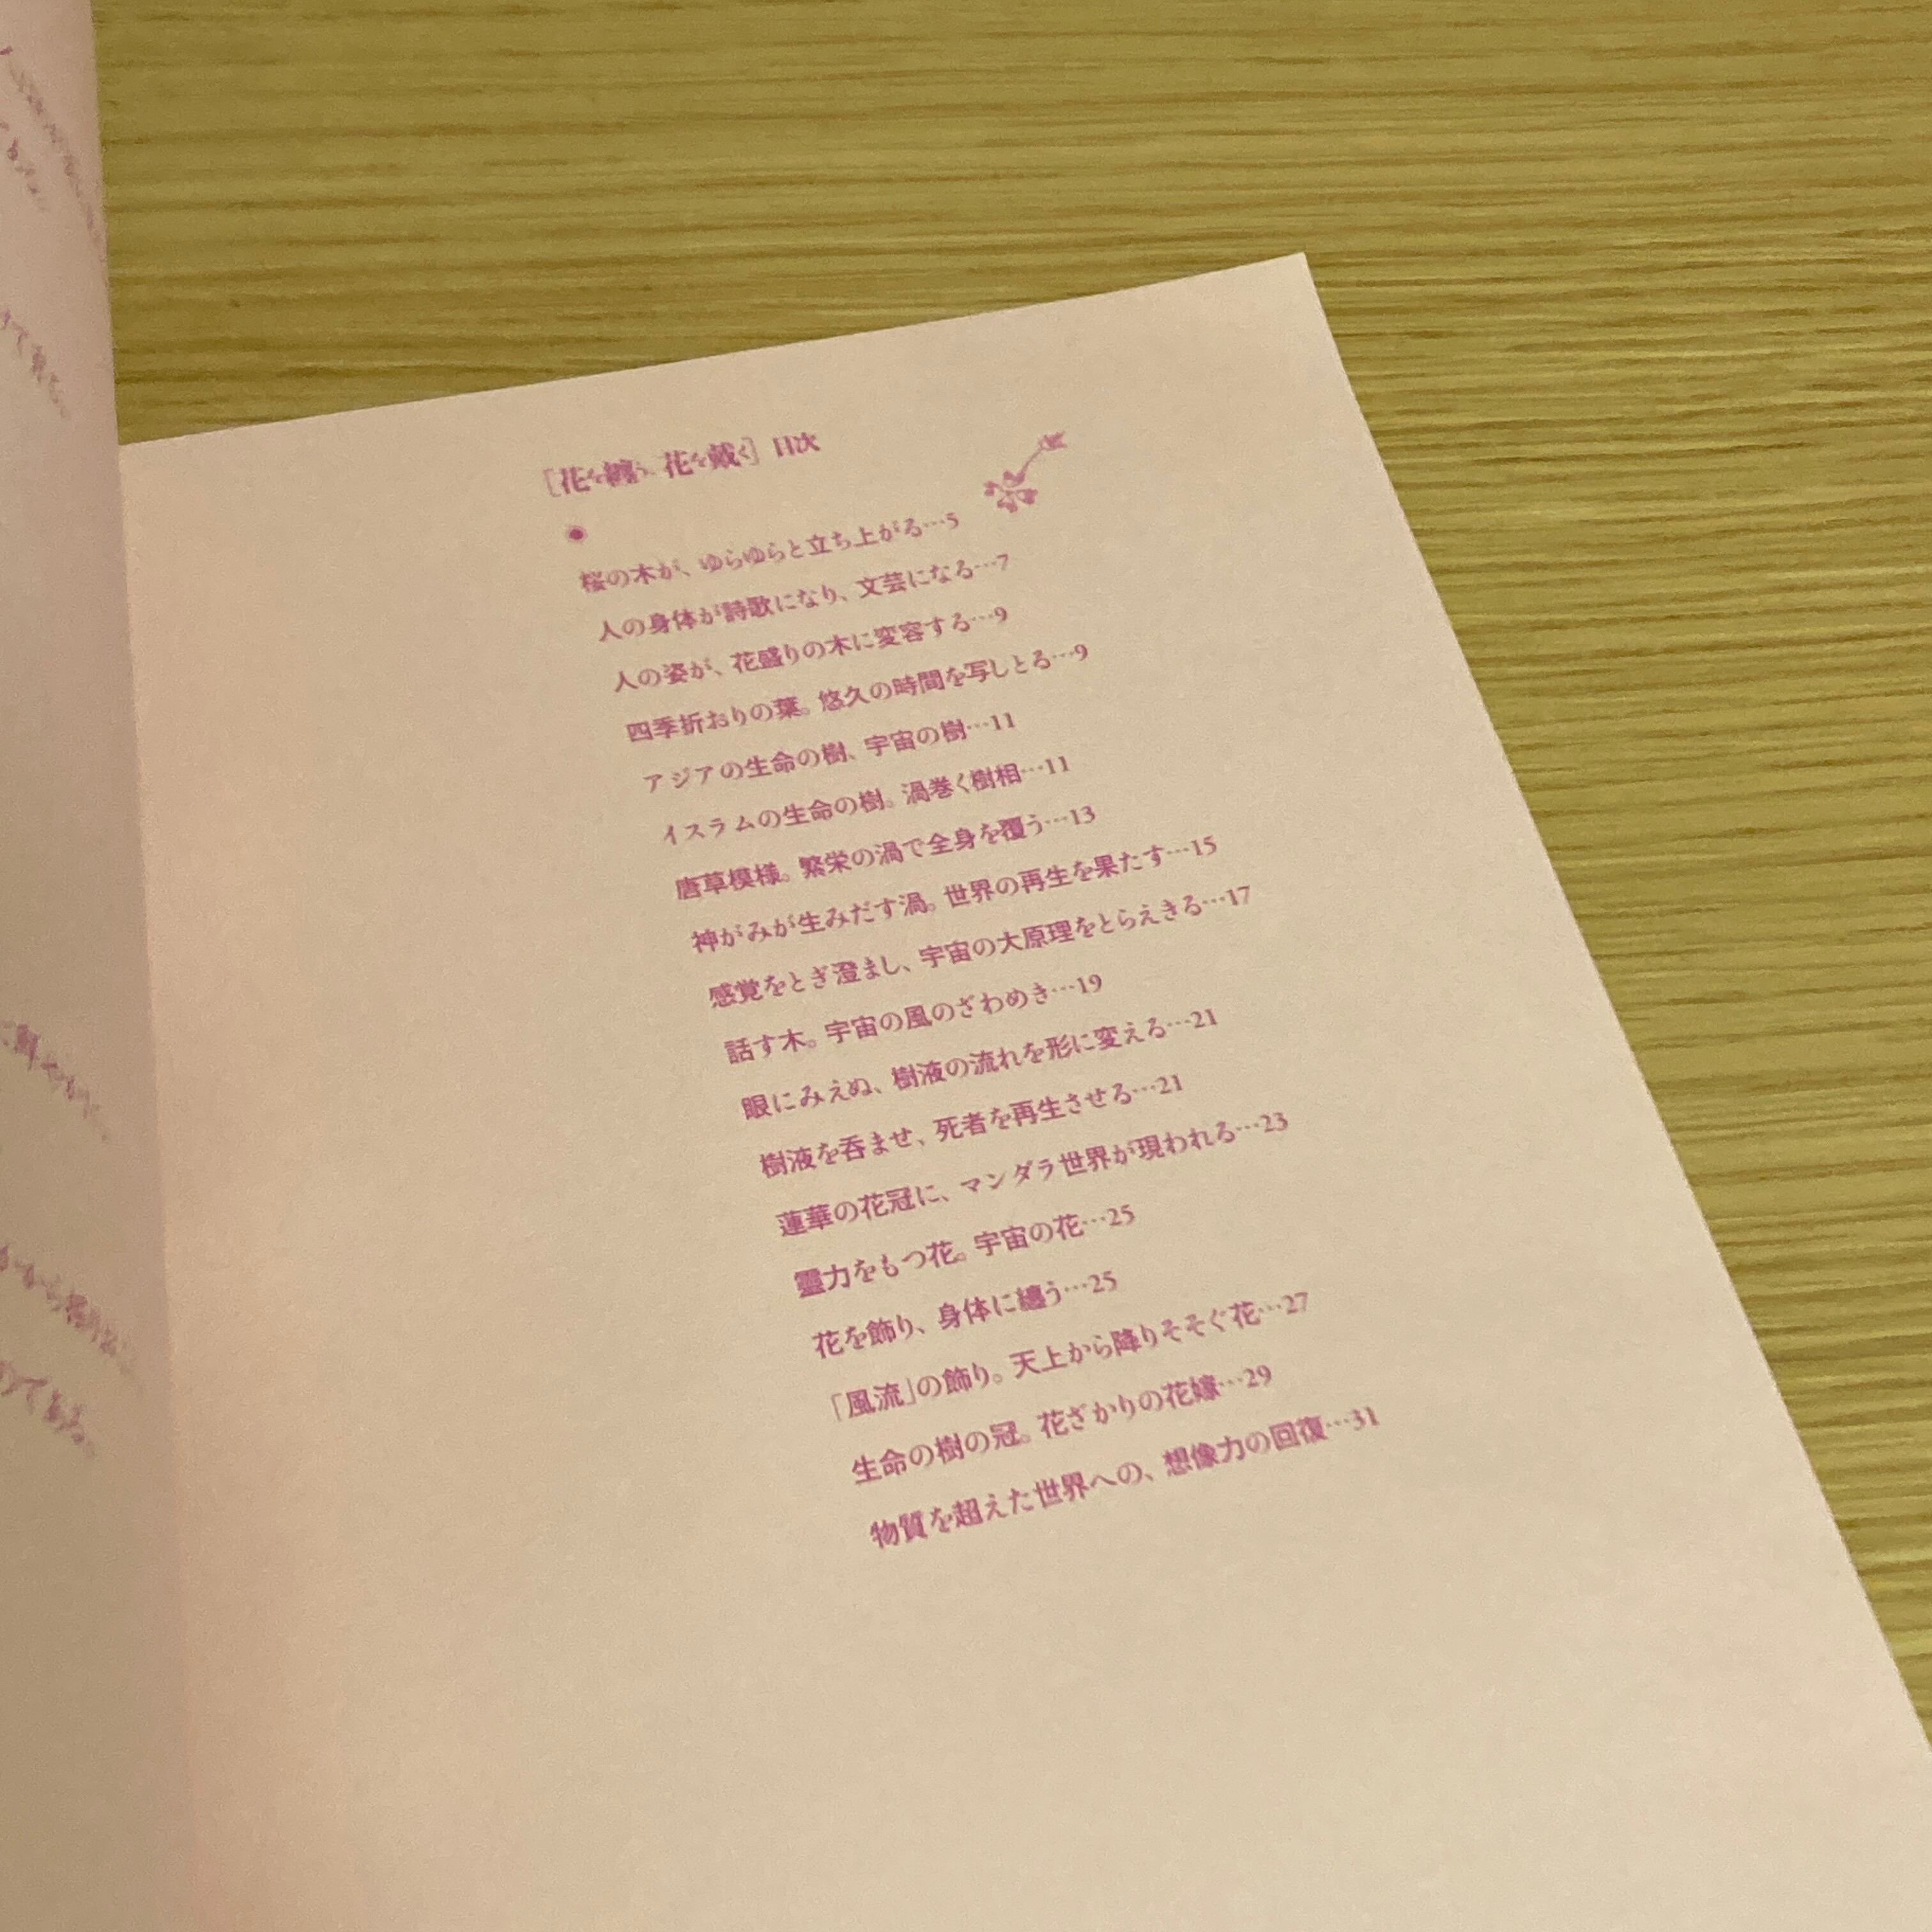 [花を纏う、花を戴く] 目次
桜の木が、ゆらゆらと立ち上がる…5
人の身体が詩歌になり、文芸になる…7
人の姿が、花盛りの木に変容する…9
四季折おりの葉。悠久の時間を写しとる…9
アジアの生命の樹、宇宙の樹…11
イスラムの生命の樹。渦巻く樹相…11
唐草模様。繁栄の渦で全身を覆う…13
神がみが生みだす渦。世界の再生を果たす…15
感覚をとぎ澄まし、宇宙の大原理をとらえきる…17
話す木。宇宙の風のざわめき…19
眼にみえぬ、樹液の流れを形に変える…21
樹液を呑ませ、死者を再生させる…21
蓮華の花冠に、マンダラ世界が現われる…23
靈力をもつ花。宇宙の花…25
花を飾り、身体に纏う…25
「風流」の飾り。天上から降りそそぐ花…27
生命の樹の冠。花ざかりの花嫁…29
物質を超えた世界への、想像力の回復…31